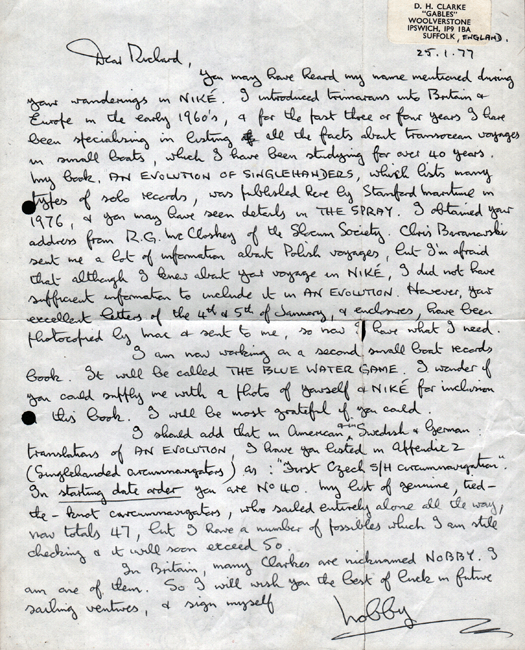 D. H. CLARKE
"GABLES"
WOOLVERSTONE
IPSWICH, IP9 1BA
SUFFOLK, ENGLAND.
25.1.77
Dear Richard,
You may have heard my name mentioned during
your wanderings in NIKÉ. I introduced trimarans into Britain &
Europe in the early 1960's, & for the past three or four years I have
been specialising in listing all the facts about transocean voyages
in small boats, which I have been studying for over 40 years.
My book. AN EVOLUTION OF SINGLEHANDERS, which lists many
types of solo records, was published here by Stanford Maritime in
1976, & you may have seen details in THE SPRAY. I obtained your
address from R.G. McCloskey of the Slocum Society. Chris Baranowski
sent me a lot of information about Polish voyages, but I'm afraid
that although I knew about your voyage in NIKÉ, I did not have
sufficient information to include it in AN EVOLUTION. However, your
excellent letters of the 4th & 5th of January, & enclosures, have been
photocopied by Mac & sent to me, so now I have what I need.
I am now working on a second small boat records
book. It will be called THE BLUE WATER GAME. I wonder if
you could supply me with a photo of yourself & NIKÉ for inclusion
in this book. I will be most grateful if you could.
I should add that in American, Swedish & German
translations of AN EVOLUTION, I have you listed in Appendix 2
(Singlehanded circumnavigators) as: "First Czech S/H circumnavigation".
In starting date order you are No 40. My list of genuine, tied-
the-knot circumnavigators, who sailed entirely alone all the way,
now totals 47, but I have a number of possibles which I am still
checking & it will soon exceed 50.
In Britain, many Clarkes are nicknamed NOBBY. I
am one of them. So I will wish you the best of luck in future
sailing ventures, & sign myself
Nobby